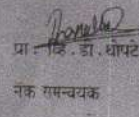 प्रा. व्हि. डी. धोपटे
नॅक समन्वयक